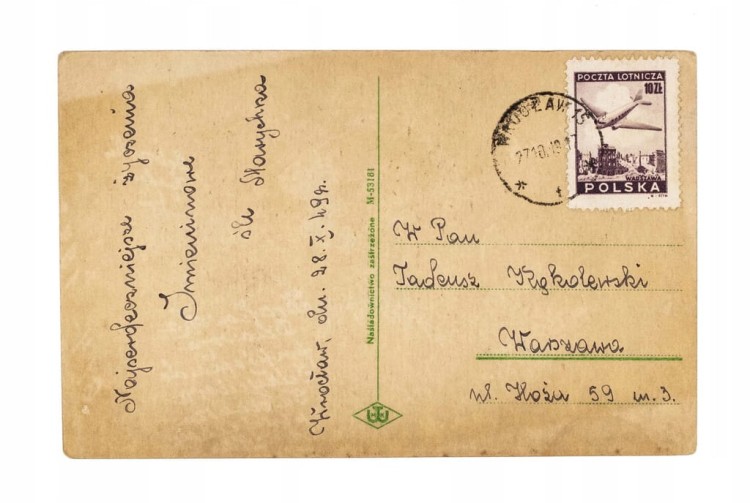 Najserdeczniejsze życzenia
Imieninowe
śle Marychna
Wrocław, dn. 28.X.49r.
Naśladownictwo zastrzeżone M-53181
WROCŁAW 15
POCZTA LOTNICZA
10ZŁ
WARSZAWA
POLSKA
W Pan
Tadeusz Kąkolewski
Warszawa
ul. Hoża 59 m. 3.